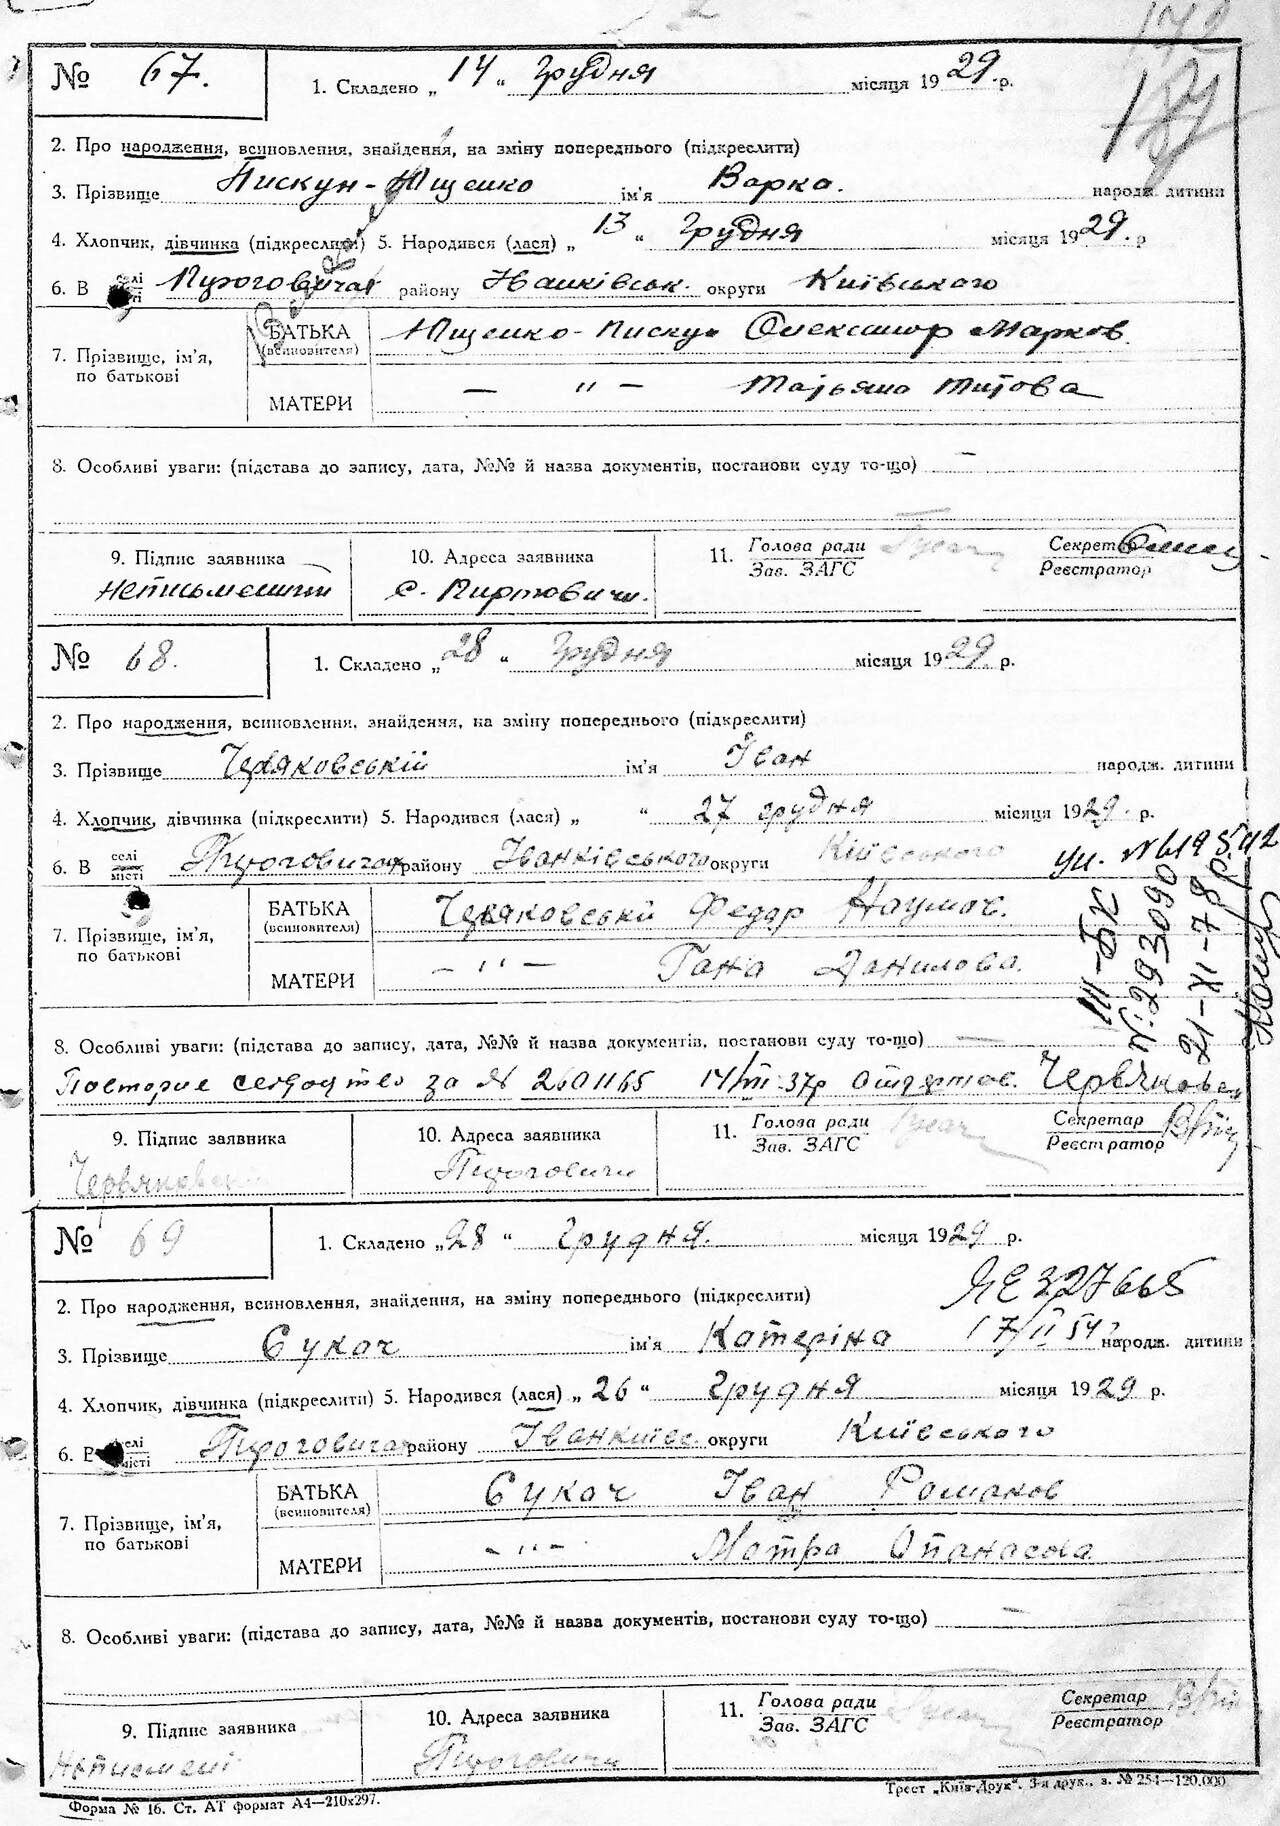 172
№ 67. 1. Складено „ 14 “ Грудня місяця 1929 р.
2. Про народження, всиновлення, знайдення, на зміну попереднього (підкреслити)
3. Прізвище Пискун-Ющенко ім'я Варка. народж. дитини
4. Хлопчик, дівчинка (підкреслити) 5. Народився (лася) „ 13 “ Грудня місяця 1929. р
6. В селі місті район у округи Київського
7. Прізвище, ім'я, по батькові
БАТЬКА (всиновителя) Ющенко-Пискун Олександр Марков.
МАТЕРИ — " — Татьяна Титова
8. Особливі уваги: (підстава до запису, дата, №№ й назва документів, постанови суду то-що) —
9. Підпис заявника 10. Адреса заявника 11. Голова ради Зав. ЗАГС Секретар Реєстратор
с.
№ 68. 1. Складено „ 28 “ Грудня місяця 1929. р.
2. Про народження, всиновлення, знайдення, на зміну попереднього (підкреслити)
3. Прізвище ім'я Іван народж. дитини
4. Хлопчик, дівчинка (підкреслити) 5. Народився (лася) „ “ 27 грудня місяця 1929. р.
6. В селі місті Пироговичах району Іванківського округи Київського
7. Прізвище, ім'я, по батькові
БАТЬКА (всиновителя) Федар Наумов.
МАТЕРИ — " — Гана Данилова.
ІІІ-БК
№ 293090
21-XI-78 р.
8. Особливі уваги: (підстава до запису, дата, №№ й назва документів, постанови суду то-що) —
за № 2601165 14/VII-37р
9. Підпис заявника 10. Адреса заявника 11. Голова ради Зав. ЗАГС Секретар Реєстратор
Червяковский Пироговичи
№ 69 1. Складено „ 28 “ Грудня. місяця 1929 р.
2. Про народження, всиновлення, знайдення, на зміну попереднього (підкреслити)
ЯЕ 327665
17/II 54
3. Прізвище Сукач ім'я Катеріна народж. дитини
4. Хлопчик, дівчинка (підкреслити) 5. Народився (лася) „ 26 “ Грудня місяця 1929 р.
6. В селі місті Пироговичах району округи Київського
7. Прізвище, ім'я, по батькові
БАТЬКА (всиновителя) Сукач Іван Романов
МАТЕРИ — " — Мотра Опанасова
8. Особливі уваги: (підстава до запису, дата, №№ й назва документів, постанови суду то-що) —
9. Підпис заявника 10. Адреса заявника 11. Голова ради Зав. ЗАГС Секретар Реєстратор
Неписмені Пироговичи
Форма № 16. Ст. АТ формат А4—210х297. Трест „Київ-Друк“. 3-я друк., з. № 254—120.000